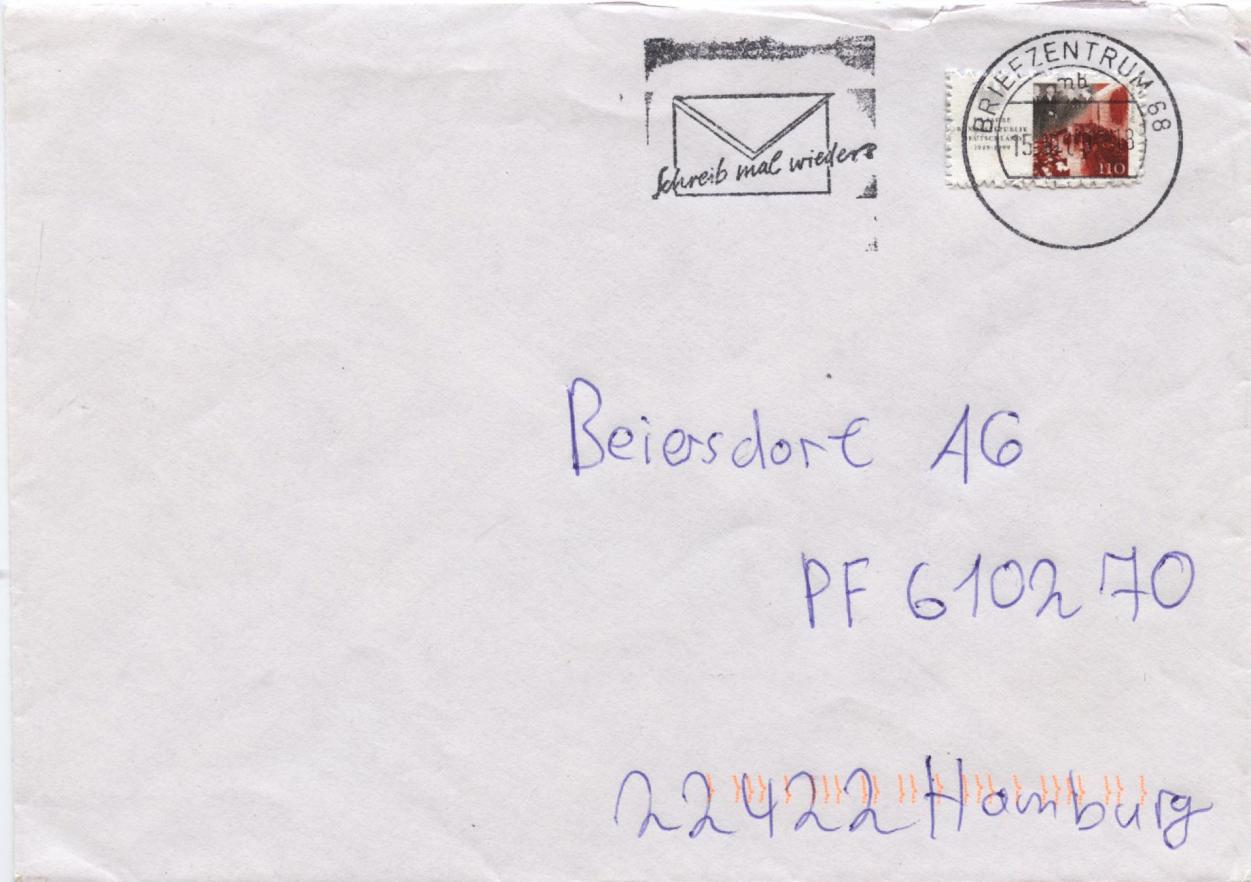 BRIEFZENTRUM 68
mb
DEUTSCHLAND
1949-1999
110
Schreib mal wieder
Beiersdorf AG
PF 6102 70
22422 Hamburg